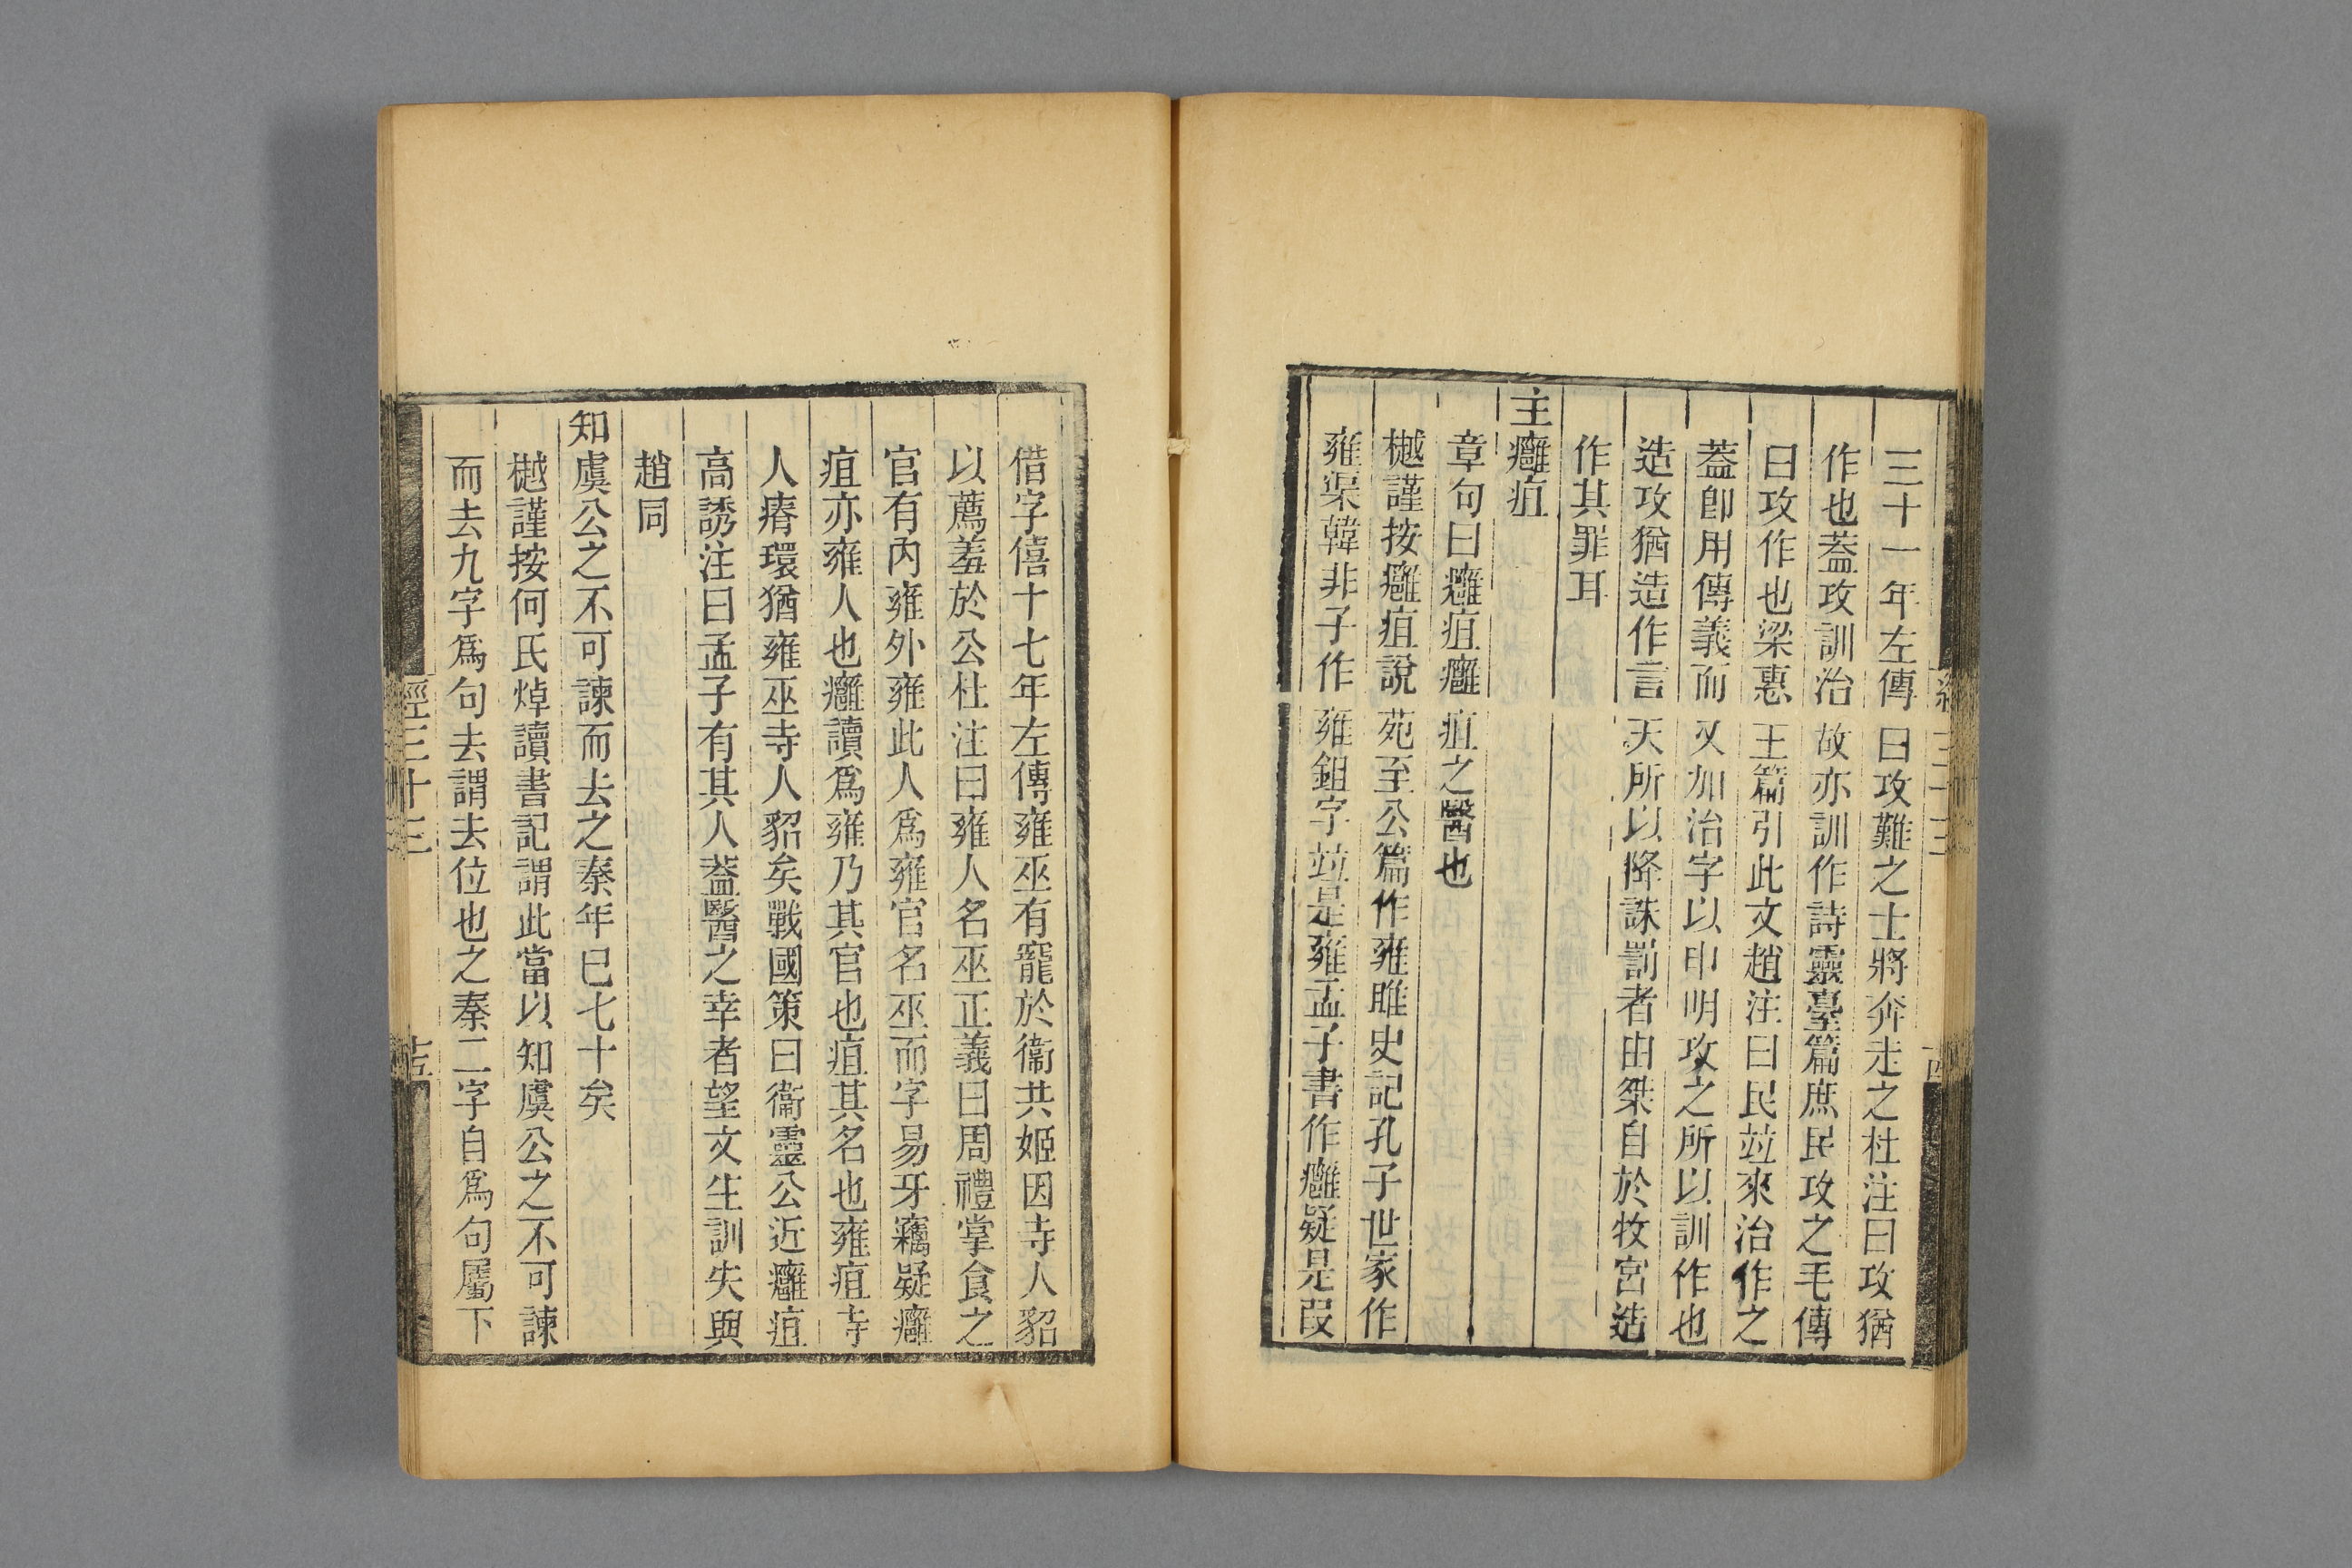 三十一年左傳曰攻難之士將奔走之杜注曰攻猶
作也葢攻訓治故亦訓作詩靈臺篇庶民攻之毛傳
曰攻作也梁惠王篇引此文趙注曰民竝來治作之
葢卽用傳義而又加治字以申明攻之所以訓作也
造攻猶造作言天所以降誅罰者由桀自於牧宮造
作其罪耳
主癰疽
章句曰癰疽癰疽之醫也
樾謹按癰疽說苑至公篇作雍雎史記孔子世家作
雍渠韓非子作雍鉏字竝是雍孟子書作癰疑是叚
借字僖十七年左傳雍巫有寵於衞共姬因寺人貂
以薦羞於公杜注曰雍人名巫正義曰周禮掌食之
官有內雍外雍此人爲雍官名巫而字易牙竊疑癰
疽亦雍人也癰讀爲雍乃其官也疽其名也雍疽寺
人瘠環猶雍巫寺人貂矣戰國策曰衞靈公近癰疽
高誘注曰孟子有其人葢醫之幸者望文生訓失與
趙同
知虞公之不可諫而去之秦年已七十矣
樾謹按何氏焯讀書記謂此當以知虞公之不可諫
而去九字爲句去謂去位也之秦二字自爲句屬下
經三十三